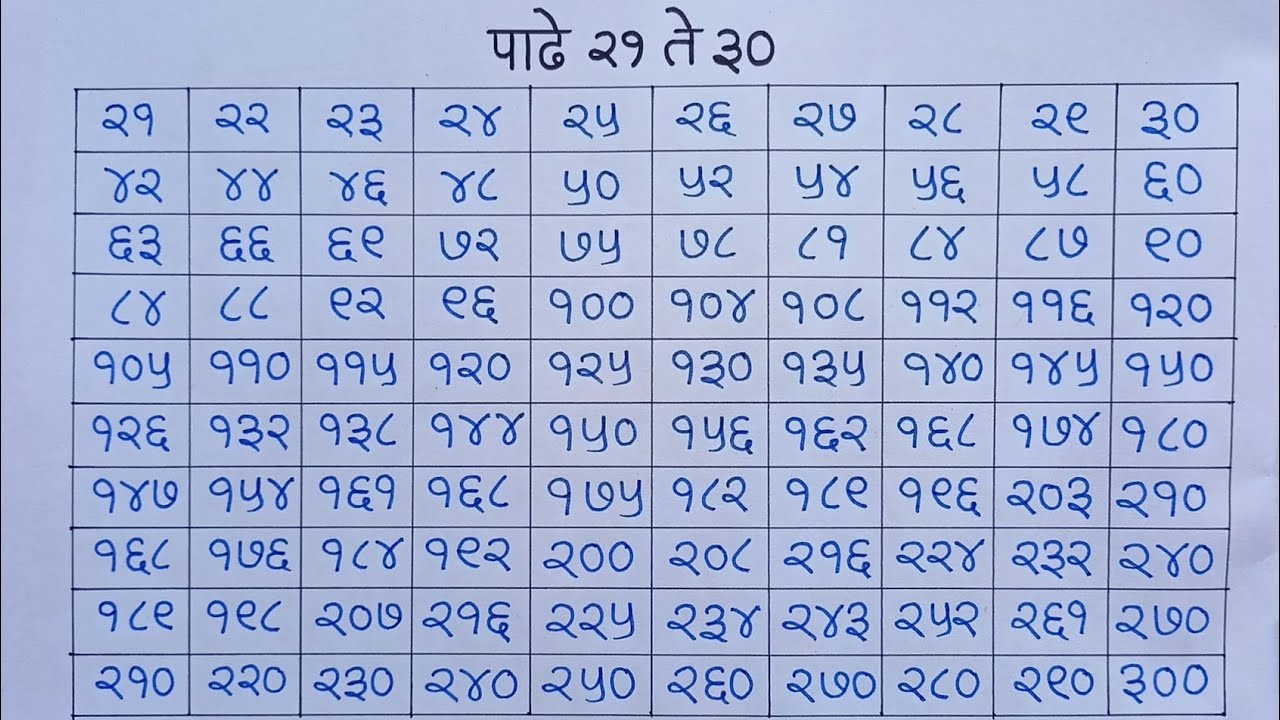 पाढे २१ ते ३०
२१ २२ २३ २४ २५ २६ २७ २८ २९ ३०
४२ ४४ ४६ ४८ ५० ५२ ५४ ५६ ५८ ६०
६३ ६६ ६९ ७२ ७५ ७८ ८१ ८४ ८७ ९०
८४ ८८ ९२ ९६ १०० १०४ १०८ ११२ ११६ १२०
१०५ ११० ११५ १२० १२५ १३० १३५ १४० १४५ १५०
१२६ १३२ १३८ १४४ १५० १५६ १६२ १६८ १७४ १८०
१४७ १५४ १६१ १६८ १७५ १८२ १८९ १९६ २०३ २१०
१६८ १७६ १८४ १९२ २०० २०८ २१६ २२४ २३२ २४०
१८९ १९८ २०७ २१६ २२५ २३४ २४३ २५२ २६१ २७०
२१० २२० २३० २४० २५० २६० २७० २८० २९० ३००